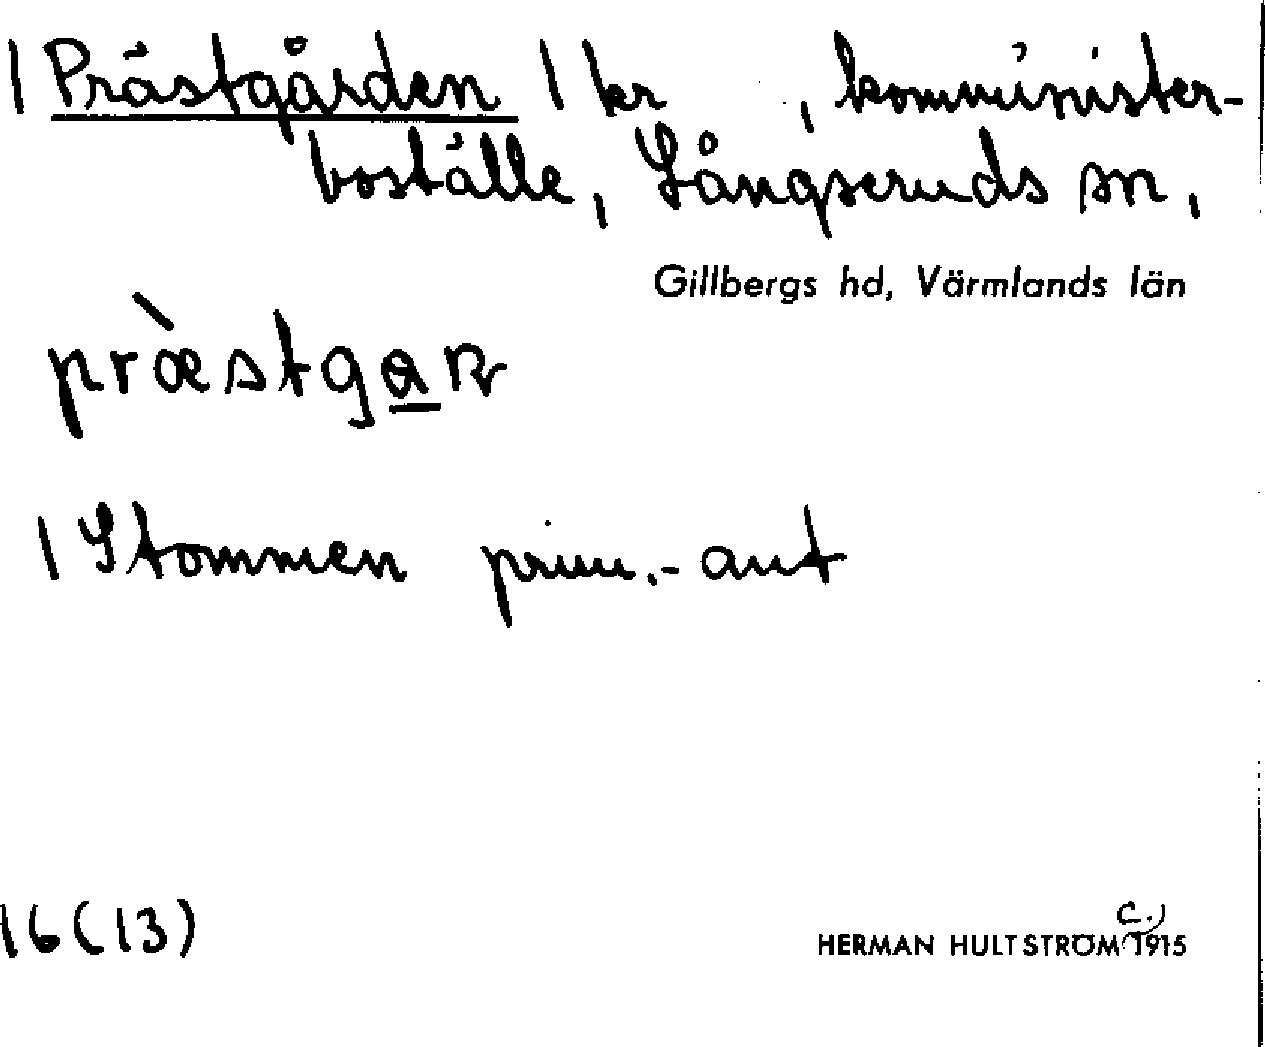 1 Prästgården 1 kr , komminister-
boställe, Långseruds sn,
Gillbergs hd, Värmlands län
præ̀stga̲ɳ
1 Stommen prim.-aut
16(13)
HERMAN HULTSTRÖM (c.) 1915